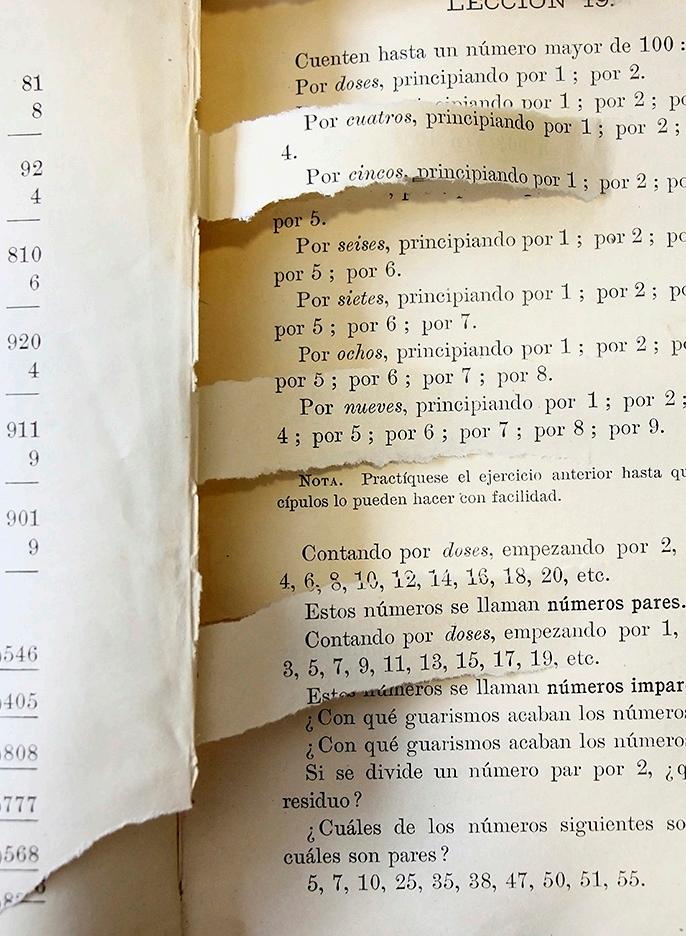 81
8
92
4
810
6
920
4
911
9
901
9
)546
)405
)808
)777
)568
LECCIÓN 19.
Cuenten hasta un número mayor de 100 :
Por doses, principiando por 1 ; por 2.
principiando por 1 ; por 2 ;
Por cuatros, principiando por 1 ; por 2 ;
4.
Por cincos, principiando por 1 ; por 2 ;
por 5.
Por seises, principiando por 1 ; por 2 ;
por 5 ; por 6.
Por sietes, principiando por 1 ; por 2 ;
por 5 ; por 6 ; por 7.
Por ochos, principiando por 1 ; por 2 ;
por 5 ; por 6 ; por 7 ; por 8.
Por nueves, principiando por 1 ; por 2 ;
4 ; por 5 ; por 6 ; por 7 ; por 8 ; por 9.
NOTA. Practíquese el ejercicio anterior hasta
cípulos lo pueden hacer con facilidad.
Contando por doses, empezando por 2,
4, 6, 8, 10, 12, 14, 16, 18, 20, etc.
Estos números se llaman números pares.
Contando por doses, empezando por 1,
3, 5, 7, 9, 11, 13, 15, 17, 19, etc.
Estos números se llaman números impar
¿Con qué guarismos acaban los número
¿Con qué guarismos acaban los número
Si se divide un número par por 2, ¿q
residuo ?
¿Cuáles de los números siguientes so
cuáles son pares ?
5, 7, 10, 25, 35, 38, 47, 50, 51, 55.